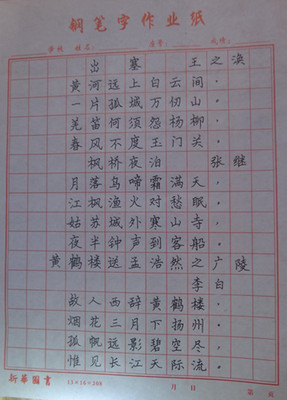 钢笔字作业纸
出塞 王之涣
黄河远上白云间,
一片孤城万仞山。
羌笛何须怨杨柳,
春风不度玉门关。
枫桥夜泊 张继
月落乌啼霜满天,
江枫渔火对愁眠。
姑苏城外寒山寺,
夜半钟声到客船。
黄鹤楼送孟浩然之广陵
李白
故人西辞黄鹤楼,
烟花三月下扬州。
孤帆远影碧空尽,
惟见长江天际流。
新华图书
月 日